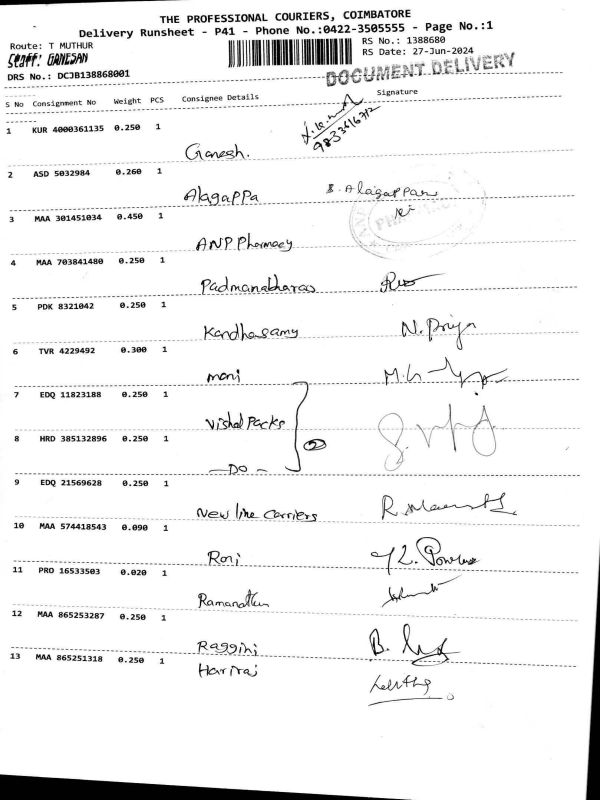 THE PROFESSIONAL COURIERS, COIMBATORE
Delivery Runsheet - P41 - Phone No.:0422-3505555 - Page No.:1
Route: T MUTHUR
RS No.: 1388680
Staff: GANESAN
RS Date: 27-Jun-2024
DRS No.: DCJB138868001
DOCUMENT DELIVERY
S No Consignment No Weight PCS Consignee Details Signature
1 KUR 4000361135 0.250 1
Ganesh.
2 ASD 5032984 0.260 1
Alagappa S. Alagappan
3 MAA 301451034 0.450 1
ANP Pharmacy
4 MAA 703841480 0.250 1
Padmanabharao
5 PDK 8321042 0.250 1
Kandhasamy N. Priya
6 TVR 4229492 0.300 1
mani
7 EDQ 11823188 0.250 1
Vishal Packs
2
8 HRD 385132896 0.250 1
- DO -
9 EDQ 21569628 0.250 1
New line Carriers
10 MAA 574418543 0.090 1
Roni
11 PRO 16533503 0.020 1
Ramanathan
12 MAA 865253287 0.250 1
Raggini
13 MAA 865251318 0.250 1
Hariraj